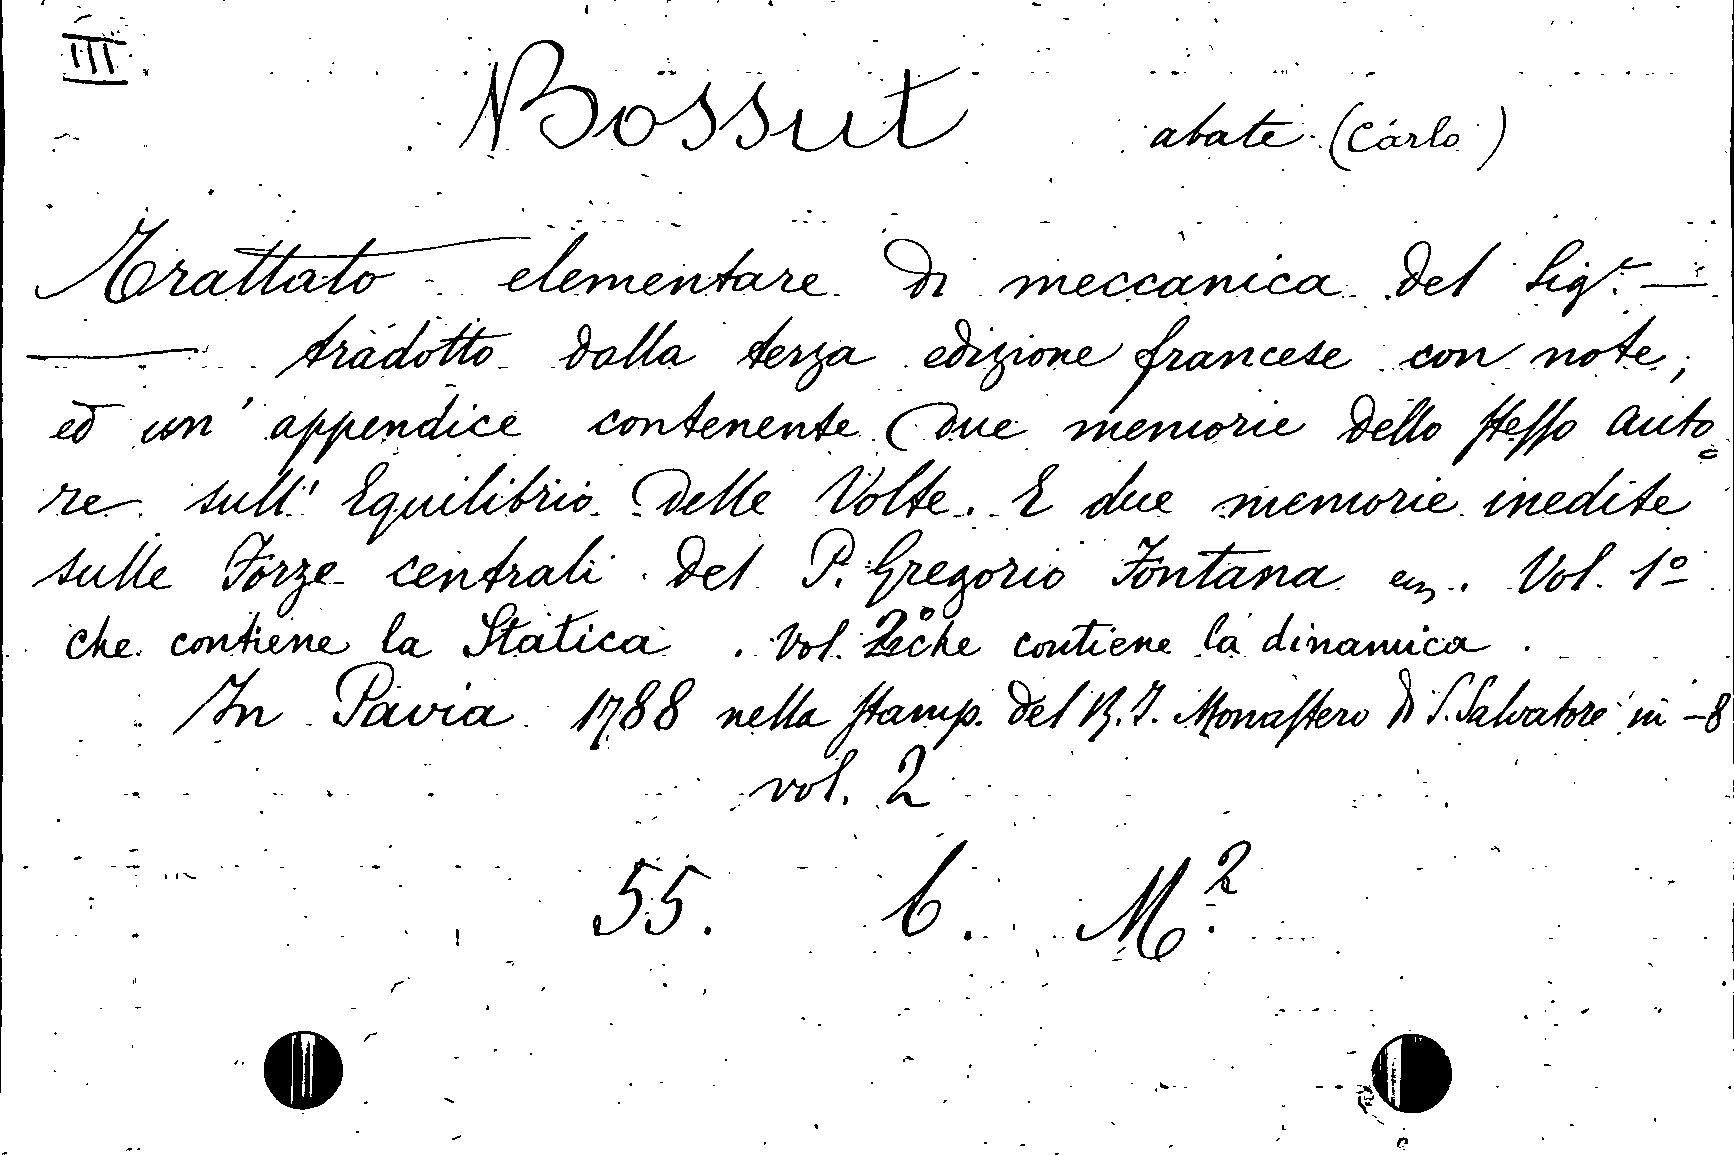 III
Bossut abate (Carlo)
Trattato elementare di meccanica del Sig.r —
— tradotto dalla terza edizione francese con note,
ed un' appendice contenente due memorie dello stesso auto=
re sull' Equilibrio delle Volte. E due memorie inedite
sulle Forze centrali del P. Gregorio Fontana . Vol. 1º
che contiene la Statica . Vol. 2º che contiene la dinamica .
In Pavia 1788 nella stamp. del R. I. Monastero di S. Salvatore in -8
vol. 2
55. 6. M.²